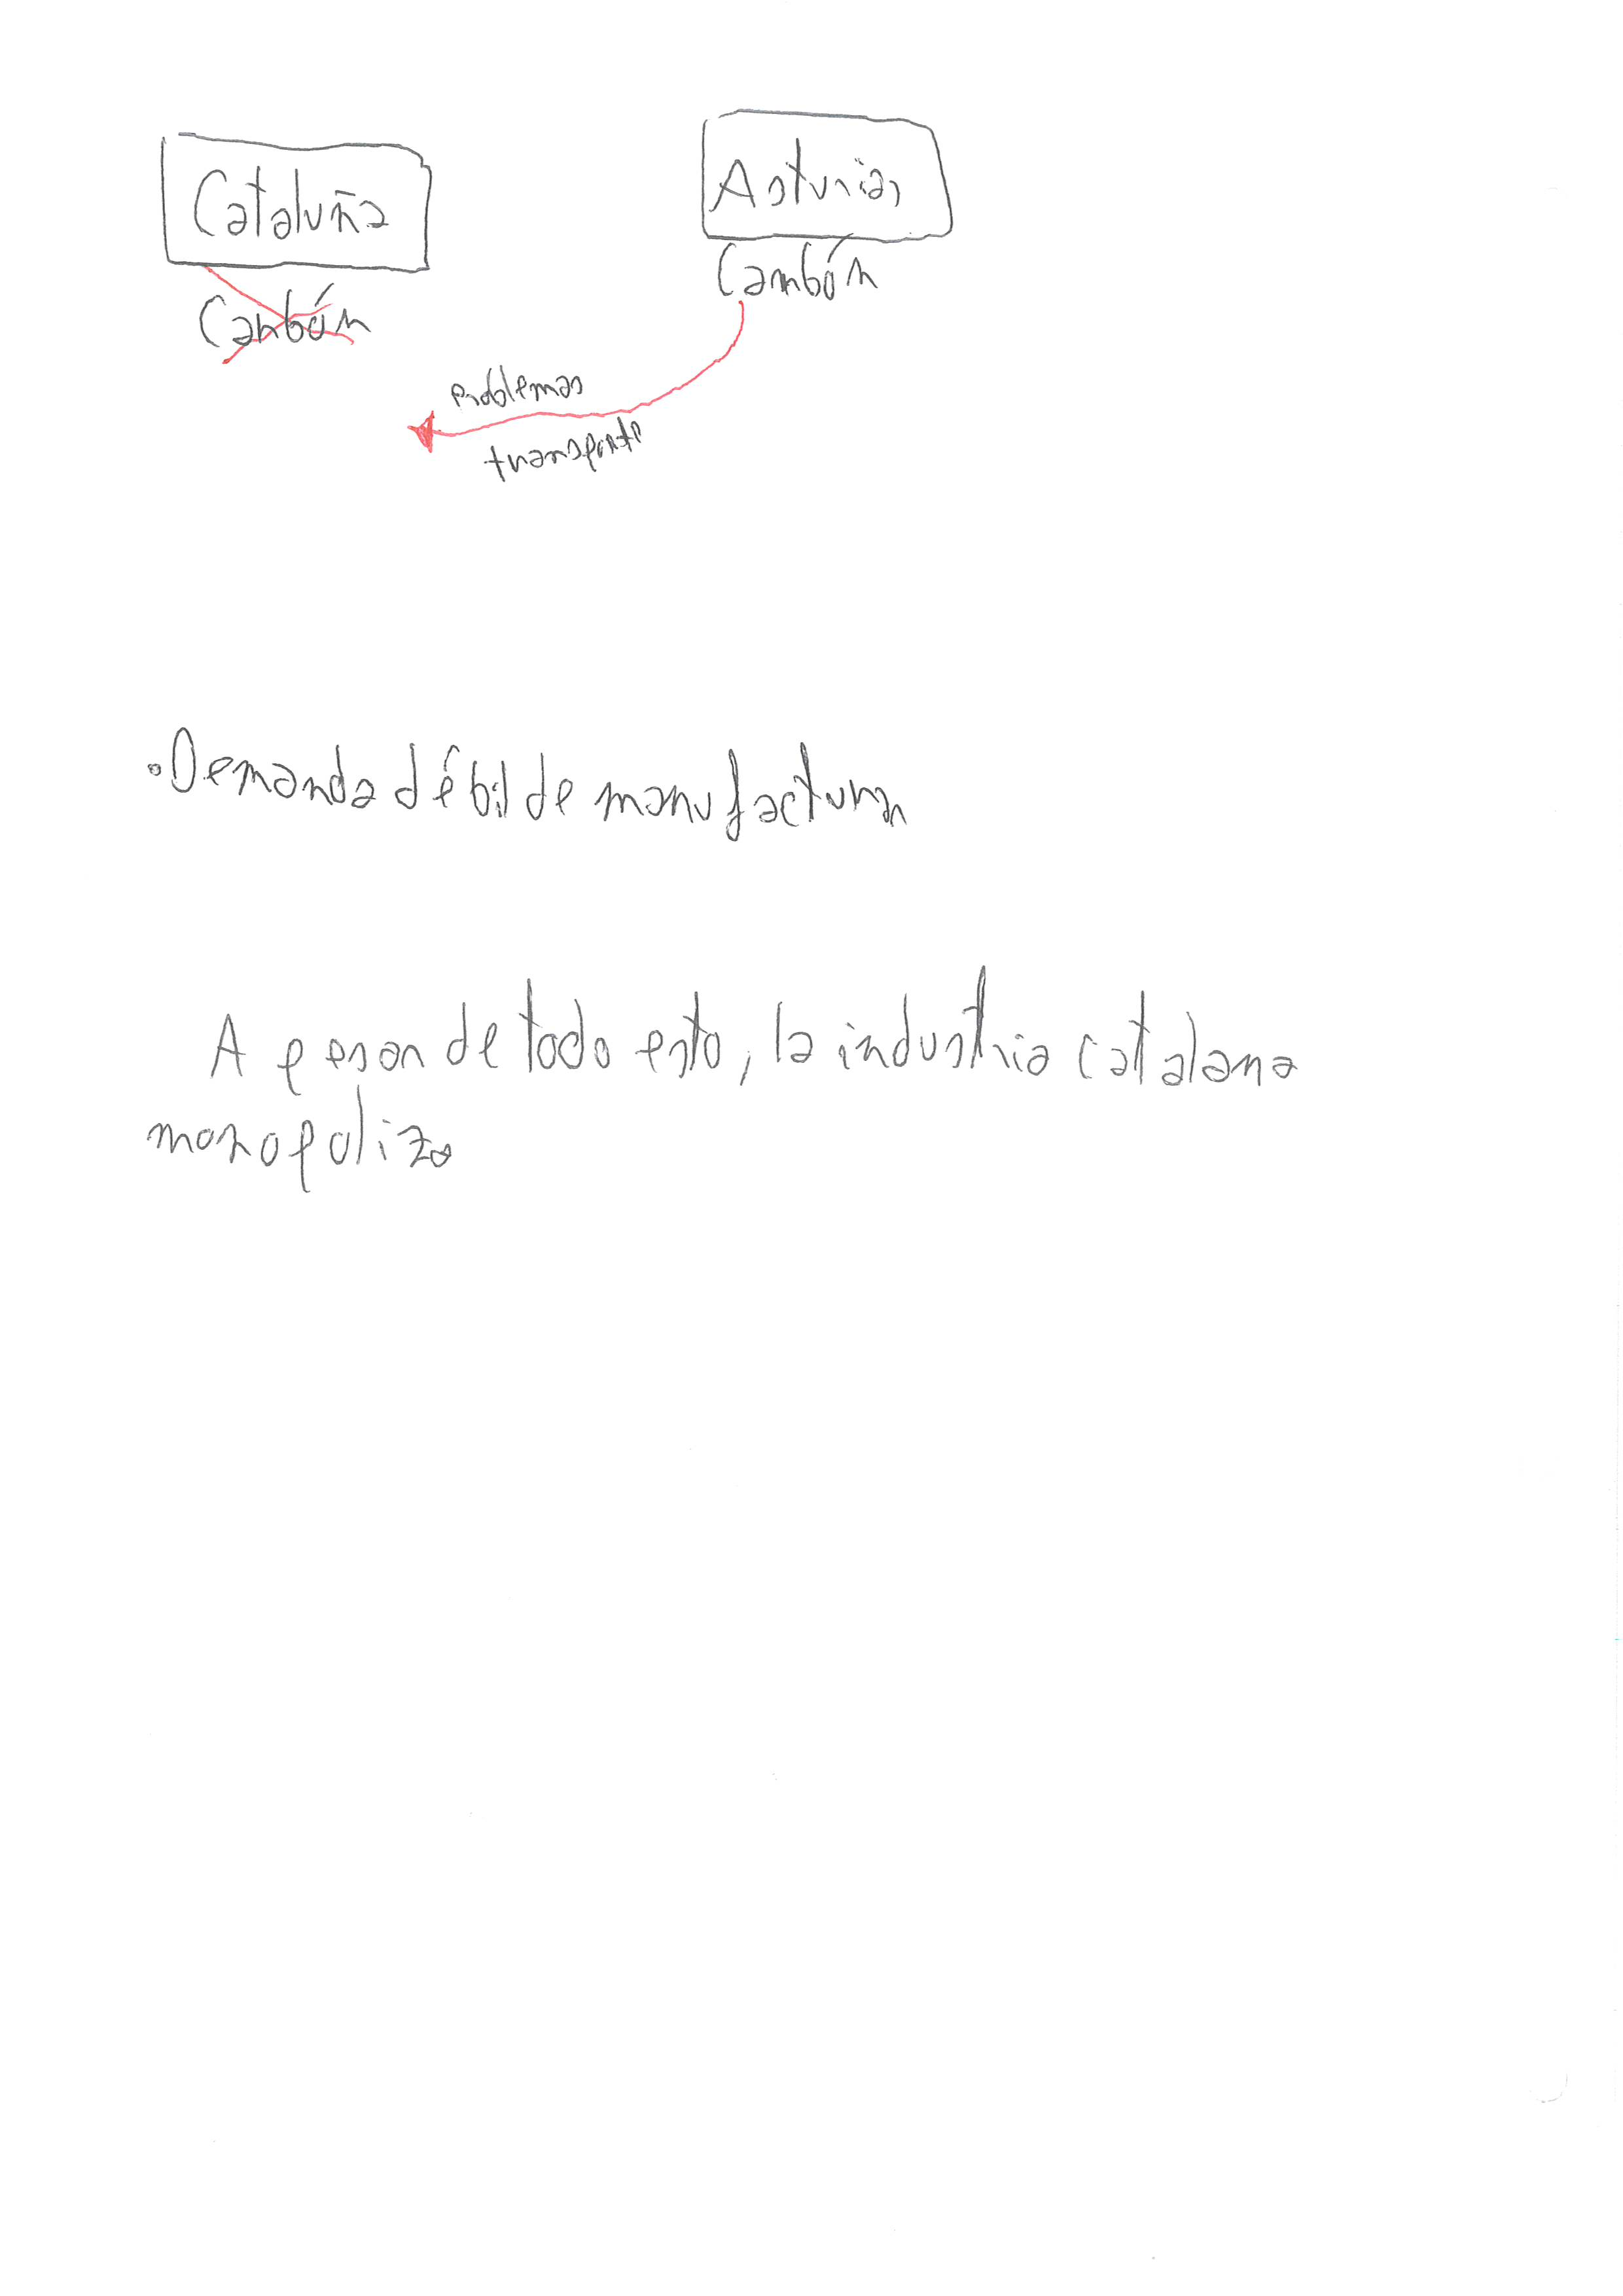 Cataluña
Asturias
Carbón
Carbón
Problemas
transporte
•Demanda débil de manufacturas
A pesar de todo esto, la industria catalana
monopolizo